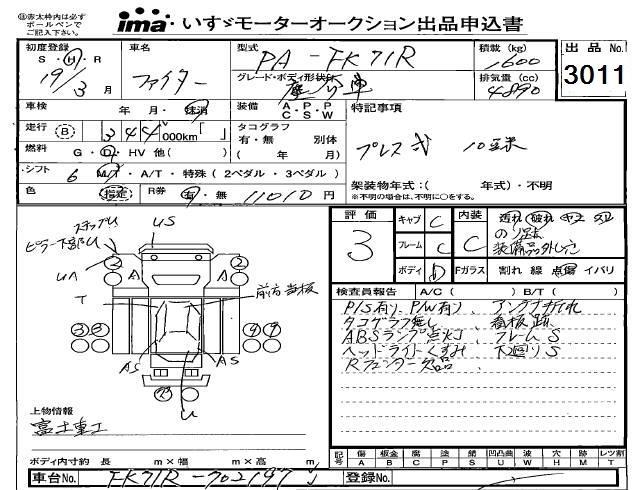 赤太枠内は必ず
ボールペンで
ご記入下さい。
ima いすゞモーターオークション出品申込書
初度登録 S・H・R 19/3月
車名 ファイター
型式 PA-FK71R
積載(kg) 1600
出品No. 3011
グレード・ボディ形状 塵芥車
排気量(cc) 4890
車検 年 月・抹消
装備 A・P・P C・S・W
特記事項
走行 B 344,000km「 」
タコグラフ 有・無 別体 ( 年 月)
プレス式 10立米
燃料 G・D・HV 他( )
シフト 6 M/T・A/T・特殊(2ペダル・3ペダル)
架装物年式:( 年式)・不明
※不明の場合は、不明に○をする。
色 指定 R券 有・無 11010円
評価 3
キャブ C
内装 C
フレーム C
ボディ D
Fガラス 割れ 線 点傷 イバリ
装備品外しこ
ステップU
US
ピラー下部U
UA
2
2
A
A
T
前方当板
3
3
4
4
AS
AS
U
検査員報告 A/C( ) B/T( )
P/S有り、P/W有り、アンテナ折れ
タコグラフ無し、看板跡
ABSランプ点灯、フレームS
ヘッドライトくすみ 下廻りS
Rフェンダー欠品
上物情報
富士重工
記号 傷A 板金B 腐C 塗P 錆S 凹凸曲U 波W 穴H 跡M レツ割T
ボディ内寸約 長 m×幅 m×高 m
車台No. FK71R-702197 J
登録No.